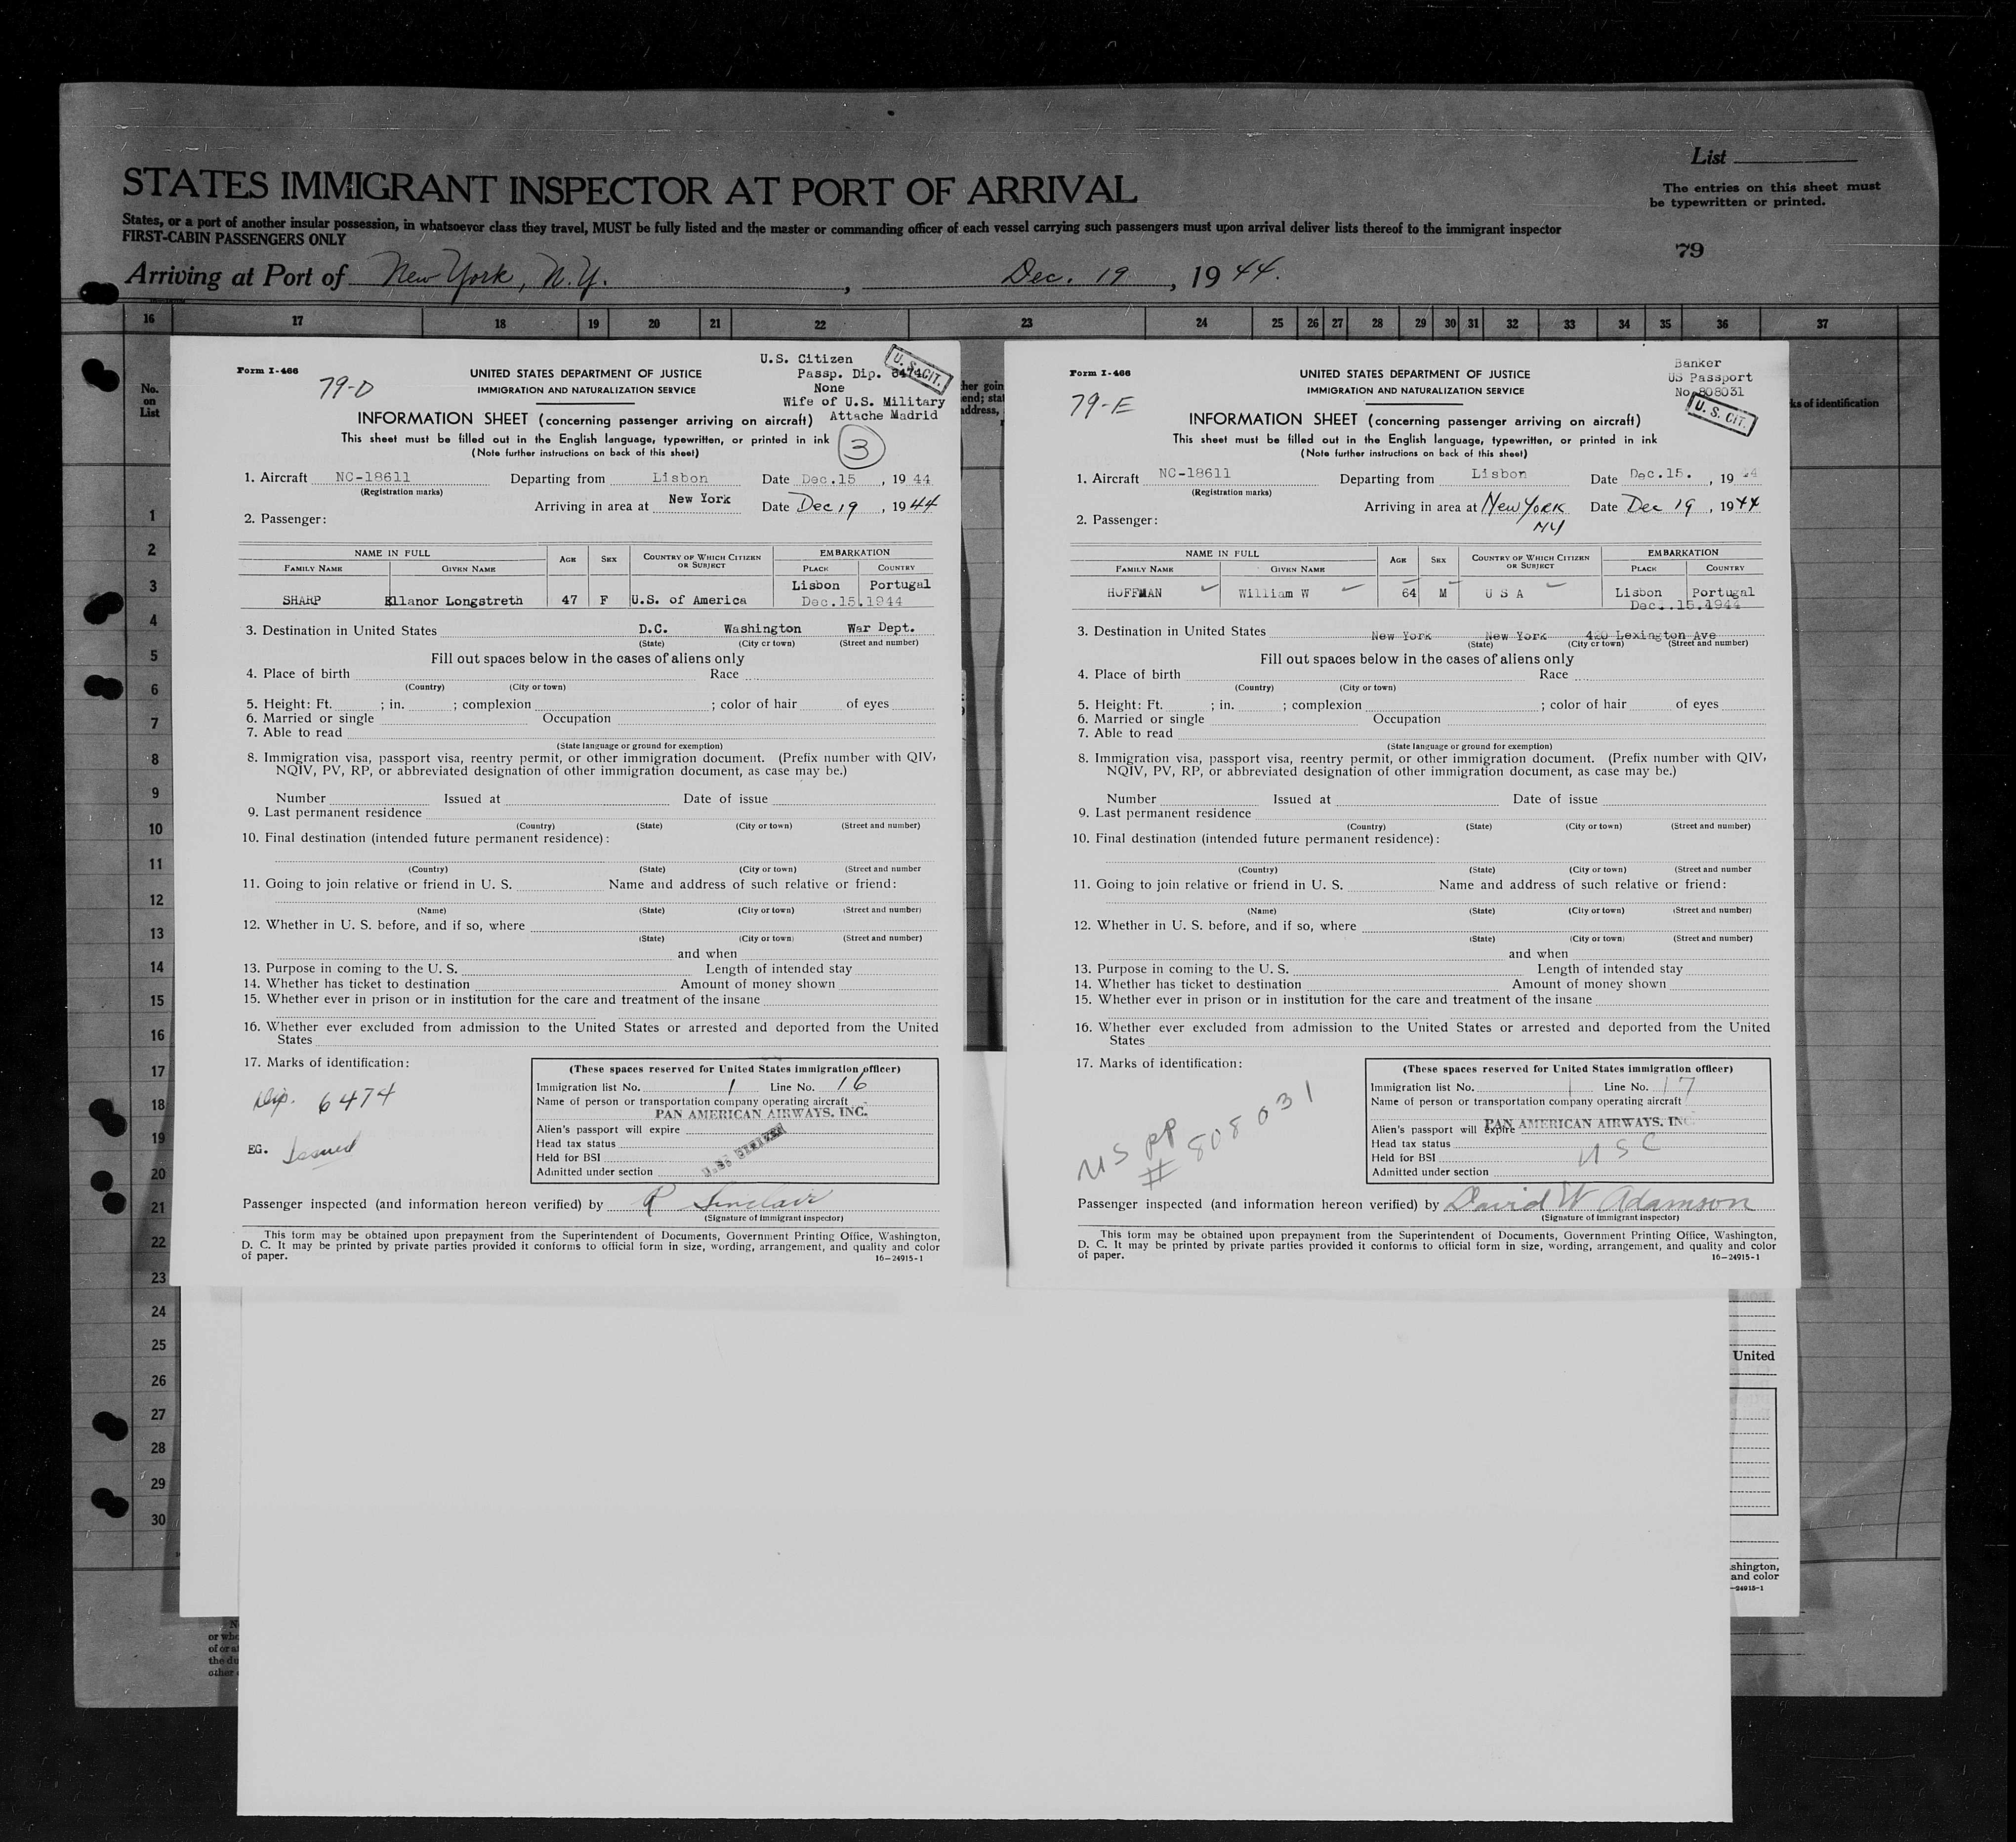 List
STATES IMMIGRANT INSPECTOR AT PORT OF ARRIVAL
The entries on this sheet must
be typewritten or printed.
States, or a port of another insular possession, in whatsoever class they travel, MUST be fully listed and the master or commanding officer of each vessel carrying such passengers must upon arrival deliver lists thereof to the immigrant inspector
FIRST-CABIN PASSENGERS ONLY
79
Arriving at Port of New York, N.Y., Dec. 19, 1944.
16 17 18 19 20 21 22 23 24 25 26 27 28 29 30 31 32 33 34 35 36 37
No.
on
List
1
2
3
4
5
6
7
8
9
10
11
12
13
14
15
16
17
18
19
20
21
22
23
24
25
26
27
28
29
30
U.S. Citizen
U. S. CIT.
Form I-466
79-D
UNITED STATES DEPARTMENT OF JUSTICE
Passp. Dip. 6474
IMMIGRATION AND NATURALIZATION SERVICE
None
Wife of U.S. Military
Attache Madrid
INFORMATION SHEET (concerning passenger arriving on aircraft)
This sheet must be filled out in the English language, typewritten, or printed in ink
(Note further instructions on back of this sheet)
3
1. Aircraft NC-18611 Departing from Lisbon Date Dec.15, 1944
(Registration marks)
Arriving in area at New York Date Dec 19, 1944
2. Passenger:
NAME IN FULL AGE SEX COUNTRY OF WHICH CITIZEN OR SUBJECT EMBARKATION
FAMILY NAME GIVEN NAME PLACE COUNTRY
Lisbon Portugal
SHARP Ellanor Longstreth 47 F U.S. of America Dec.15.1944
3. Destination in United States D.C. Washington War Dept.
(State) (City or town) (Street and number)
Fill out spaces below in the cases of aliens only
4. Place of birth Race
(Country) (City or town)
5. Height: Ft. ; in. ; complexion ; color of hair of eyes
6. Married or single Occupation
7. Able to read
(State language or ground for exemption)
8. Immigration visa, passport visa, reentry permit, or other immigration document. (Prefix number with QIV,
NQIV, PV, RP, or abbreviated designation of other immigration document, as case may be.)
Number Issued at Date of issue
9. Last permanent residence
(Country) (State) (City or town) (Street and number)
10. Final destination (intended future permanent residence):
(Country) (State) (City or town) (Street and number
11. Going to join relative or friend in U. S. Name and address of such relative or friend:
(Name) (State) (City or town) (Street and number)
12. Whether in U. S. before, and if so, where
(State) (City or town) (Street and number)
and when
13. Purpose in coming to the U. S. Length of intended stay
14. Whether has ticket to destination Amount of money shown
15. Whether ever in prison or in institution for the care and treatment of the insane
16. Whether ever excluded from admission to the United States or arrested and deported from the United
States
17. Marks of identification:
Dip. 6474
EG. Issued
(These spaces reserved for United States immigration officer)
Immigration list No. 1 Line No. 16
Name of person or transportation company operating aircraft
PAN AMERICAN AIRWAYS, INC.
Alien's passport will expire
Head tax status
U.S. CITIZEN
Held for BSI
Admitted under section
Passenger inspected (and information hereon verified) by R Sinclair
(Signature of immigrant inspector)
This form may be obtained upon prepayment from the Superintendent of Documents, Government Printing Office, Washington,
D. C. It may be printed by private parties provided it conforms to official form in size, wording, arrangement, and quality and color
of paper.
16-24915-1
Banker
US Passport
No. 808031
U. S. CIT.
Form I-466
79-E
UNITED STATES DEPARTMENT OF JUSTICE
IMMIGRATION AND NATURALIZATION SERVICE
INFORMATION SHEET (concerning passenger arriving on aircraft)
This sheet must be filled out in the English language, typewritten, or printed in ink
(Note further instructions on back of this sheet)
1. Aircraft NC-18611 Departing from Lisbon Date Dec.15., 1944
(Registration marks)
Arriving in area at New York NY Date Dec 19, 1944
2. Passenger:
NAME IN FULL AGE SEX COUNTRY OF WHICH CITIZEN OR SUBJECT EMBARKATION
FAMILY NAME GIVEN NAME PLACE COUNTRY
HOFFMAN William W 64 M U S A Lisbon Portugal
Dec..15.1944
3. Destination in United States New York New York 420 Lexington Ave
(State) (City or town) (Street and number)
Fill out spaces below in the cases of aliens only
4. Place of birth Race
(Country) (City or town)
5. Height: Ft. ; in. ; complexion ; color of hair of eyes
6. Married or single Occupation
7. Able to read
(State language or ground for exemption)
8. Immigration visa, passport visa, reentry permit, or other immigration document. (Prefix number with QIV,
NQIV, PV, RP, or abbreviated designation of other immigration document, as case may be.)
Number Issued at Date of issue
9. Last permanent residence
(Country) (State) (City or town) (Street and number)
10. Final destination (intended future permanent residence):
(Country) (State) (City or town) (Street and number
11. Going to join relative or friend in U. S. Name and address of such relative or friend:
(Name) (State) (City or town) (Street and number)
12. Whether in U. S. before, and if so, where
(State) (City or town) (Street and number)
and when
13. Purpose in coming to the U. S. Length of intended stay
14. Whether has ticket to destination Amount of money shown
15. Whether ever in prison or in institution for the care and treatment of the insane
16. Whether ever excluded from admission to the United States or arrested and deported from the United
States
17. Marks of identification:
US PP
# 808031
(These spaces reserved for United States immigration officer)
Immigration list No. 1 Line No. 17
Name of person or transportation company operating aircraft
PAN AMERICAN AIRWAYS, INC
Alien's passport will expire
Head tax status
U S C
Held for BSI
Admitted under section
Passenger inspected (and information hereon verified) by David W Adamson
(Signature of immigrant inspector)
This form may be obtained upon prepayment from the Superintendent of Documents, Government Printing Office, Washington,
D. C. It may be printed by private parties provided it conforms to official form in size, wording, arrangement, and quality and color
of paper.
16-24915-1
ks of identification
United
shington,
and color
-24915-1
or who
of or a
the du
other